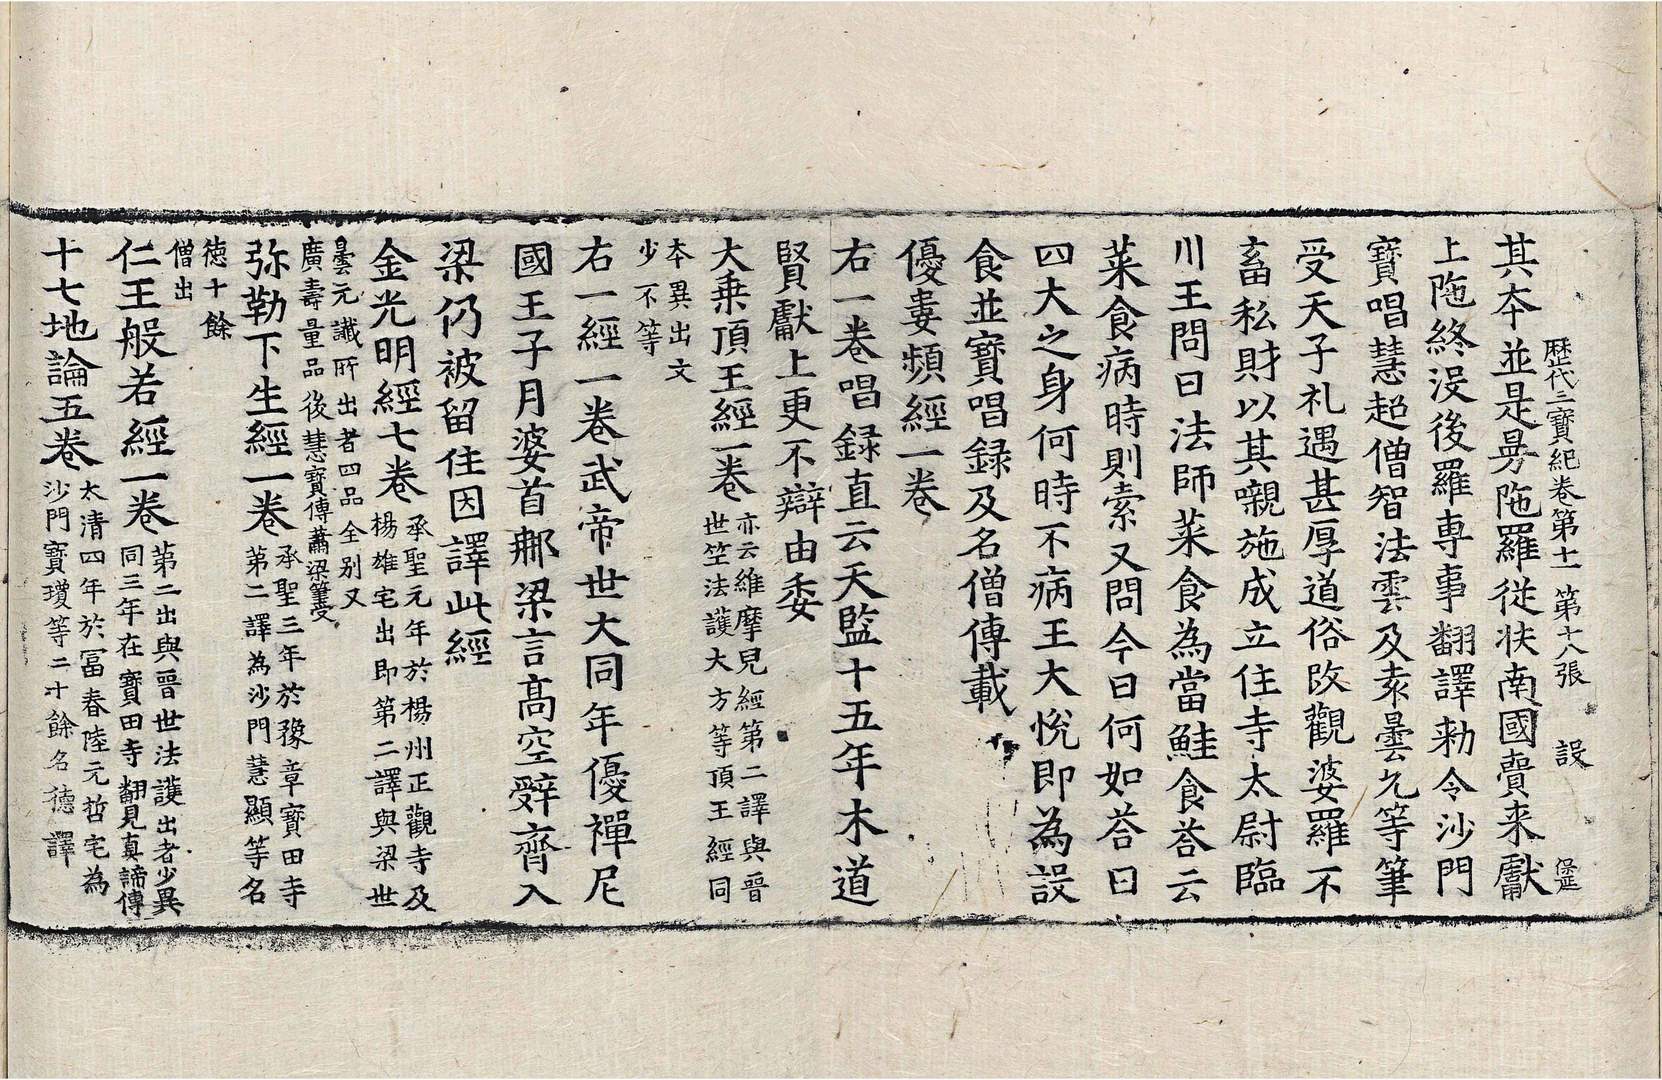 歷代三寶紀卷第十一 第十八張 設
其本並是曼陁羅從扶南國賷来獻
上陁終没後羅專事翻譯勑令沙門
寶唱慧超僧智法雲及袁曇允等筆
受天子礼遇甚厚道俗改觀婆羅不
畜私財以其嚫施成立住寺太尉臨
川王問曰法師菜食為當鮭食荅云
菜食病時則索又問今日何如荅曰
四大之身何時不病王大悅即為設
食並寶唱録及名僧傳載
優婁頻經一卷
右一卷唱録直云天監十五年木道
賢獻上更不辯由委
大乘頂王經一卷 亦云維摩兒經第二譯與晉
世竺法護大方等頂王經同
本異出文
少不等
右一經一卷武帝世大同年優禪尼
國王子月婆首那梁言高空辤齊入
梁仍被留住因譯此經
金光明經七卷 承聖元年於楊州正觀寺及
楊雄宅出即第二譯與梁世
曇元讖所出者四品全别又
廣壽量品後慧寶傳蕭梁筆受
弥勒下生經一卷 承聖三年於豫章寶田寺
第二譯為沙門慧顯等名
德十餘
僧出
仁王般若經一卷 第二出與晉世法護出者少異
同三年在寶田寺翻見真諦傳
十七地論五卷 太清四年於冨春陸元哲宅為
沙門寶瓊等二十餘名德譯